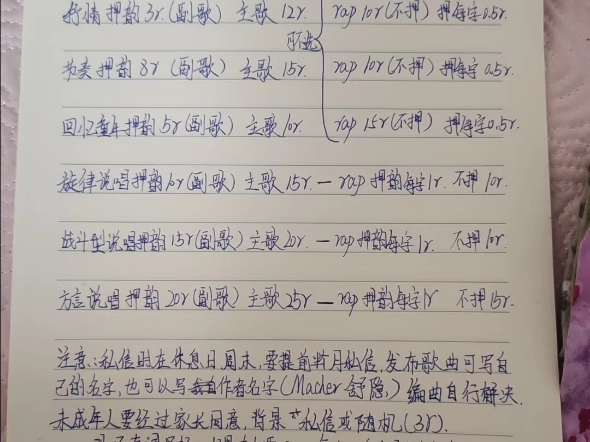 抒情 押韵 3r.(副歌) 主歌 12r. rap 10r(不押) 押每字0.5r.
可选
节奏 押韵 8r (副歌) 主歌 15r. rap 10r(不押) 押每字0.5r.
回忆童年押韵 5r(副歌) 主歌 10r. rap 15r(不押) 押每字0.5r.
旋律说唱押韵 10r(副歌) 主歌 15r. — rap 押韵每字1r. 不押 10r.
战斗型说唱押韵 15r(副歌) 主歌 20r. — rap 押韵每字1r. 不押 10r.
方言说唱 押韵 20r(副歌) 主歌 25r — rap 押韵每字1r 不押 15r.
注意:私信时在休息日周末,要提前半月私信,发布歌曲可写自
己的名字,也可以写作者名字(Macher 舒隐,)编曲自行解决.
未成年人要经过家长同意,背景 私信或随机(3r).